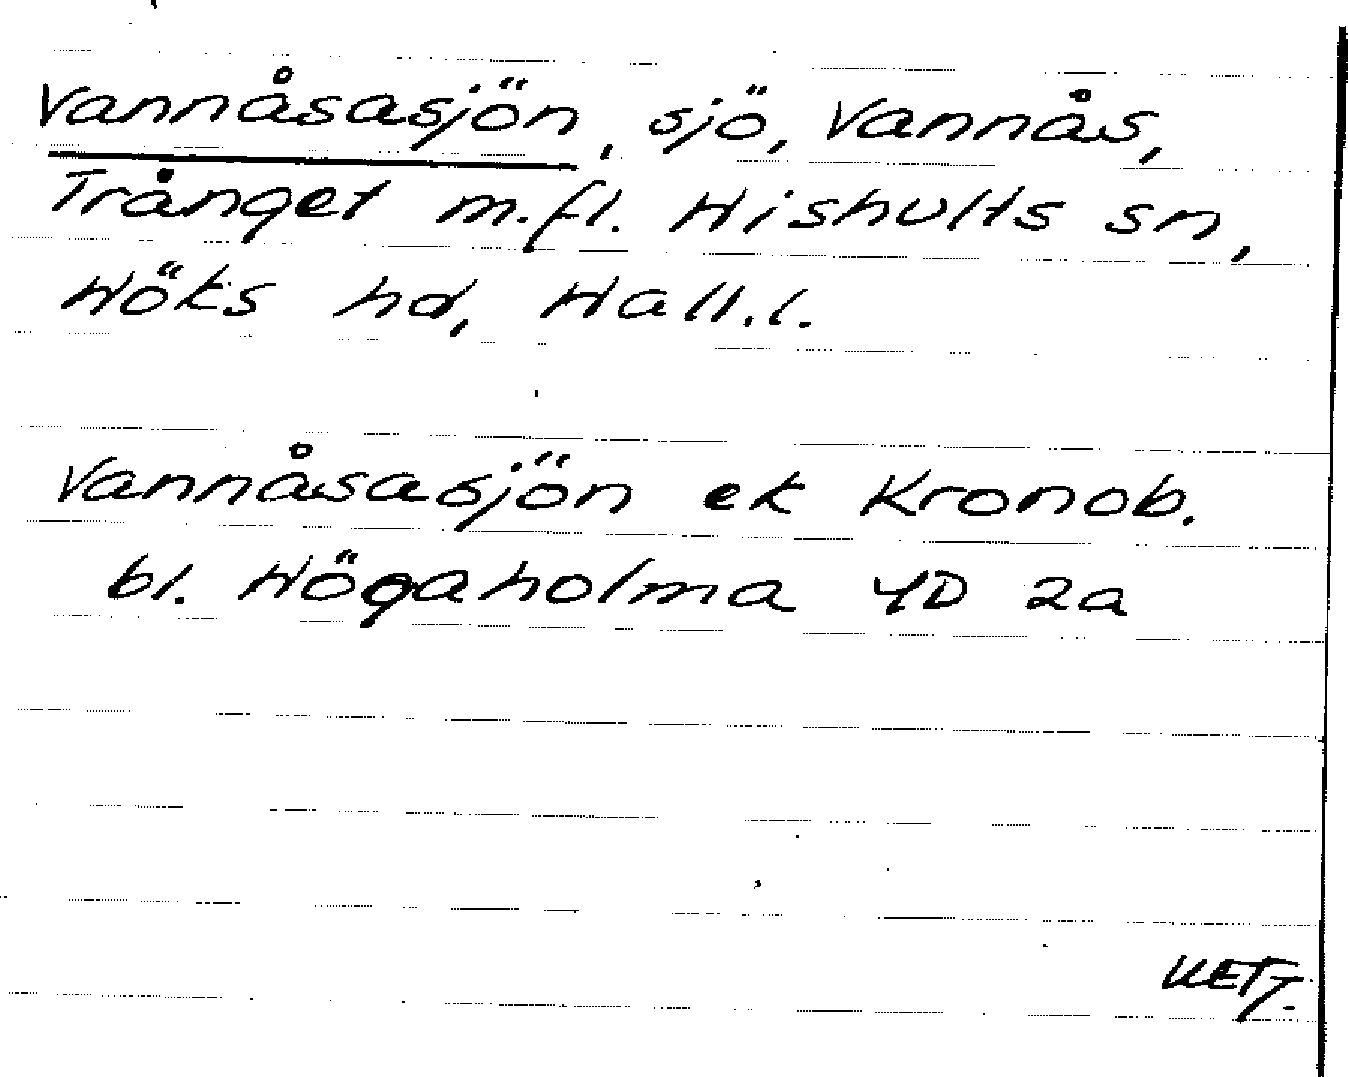 Vannåsasjön, sjö, Vannås,
Trånget m.fl. Hishults sn,
Höks hd, Hall.l.
Vannåsasjön ek Kronob.
bl. Högaholma 4D 2a